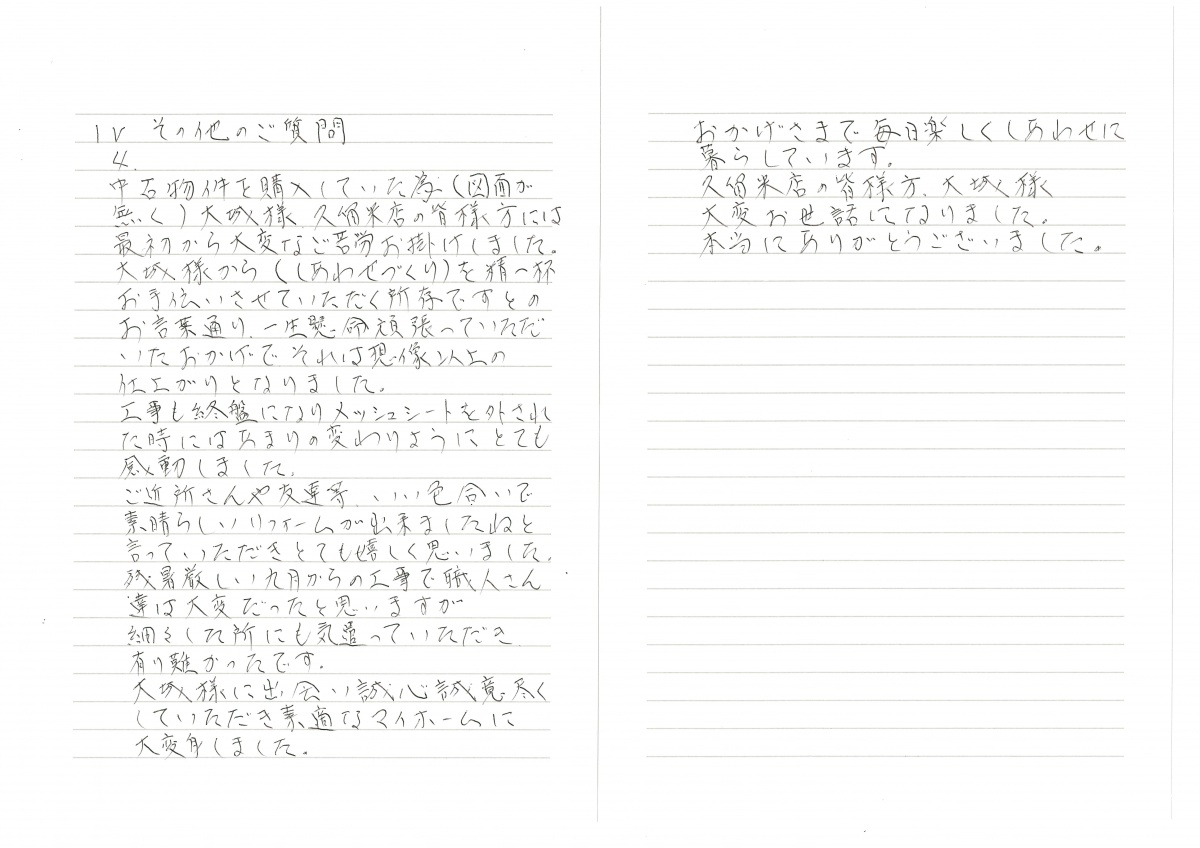 IV その他のご質問
4.
中古物件を購入していた為(図面が
無く)大城様、久留米店の皆様方には
最初から大変なご苦労お掛けしました。
大城様から(しあわせづくり)を精一杯
お手伝いさせていただく所存ですとの
お言葉通り、一生懸命頑張っていただ
いたおかげで それは想像以上の
仕上がりとなりました。
工事も終盤になりメッシュシートを外され
た時にはあまりの変わりようにとても
感動しました。
ご近所さんや友達等、いい色合いで
素晴らしいリフォームが出来ましたねと
言っていただきとても嬉しく思いました。
残暑厳しい九月からの工事で職人さん
達は大変だったと思いますが
細々した所にも気遣っていただき
有り難かったです。
大城様に出会い誠心誠意尽く
していただき素適なマイホームに
大変身しました。
おかげさまで毎日楽しくしあわせに
暮らしています。
久留米店の皆様方、大城様
大変お世話になりました。
本当にありがとうございました。